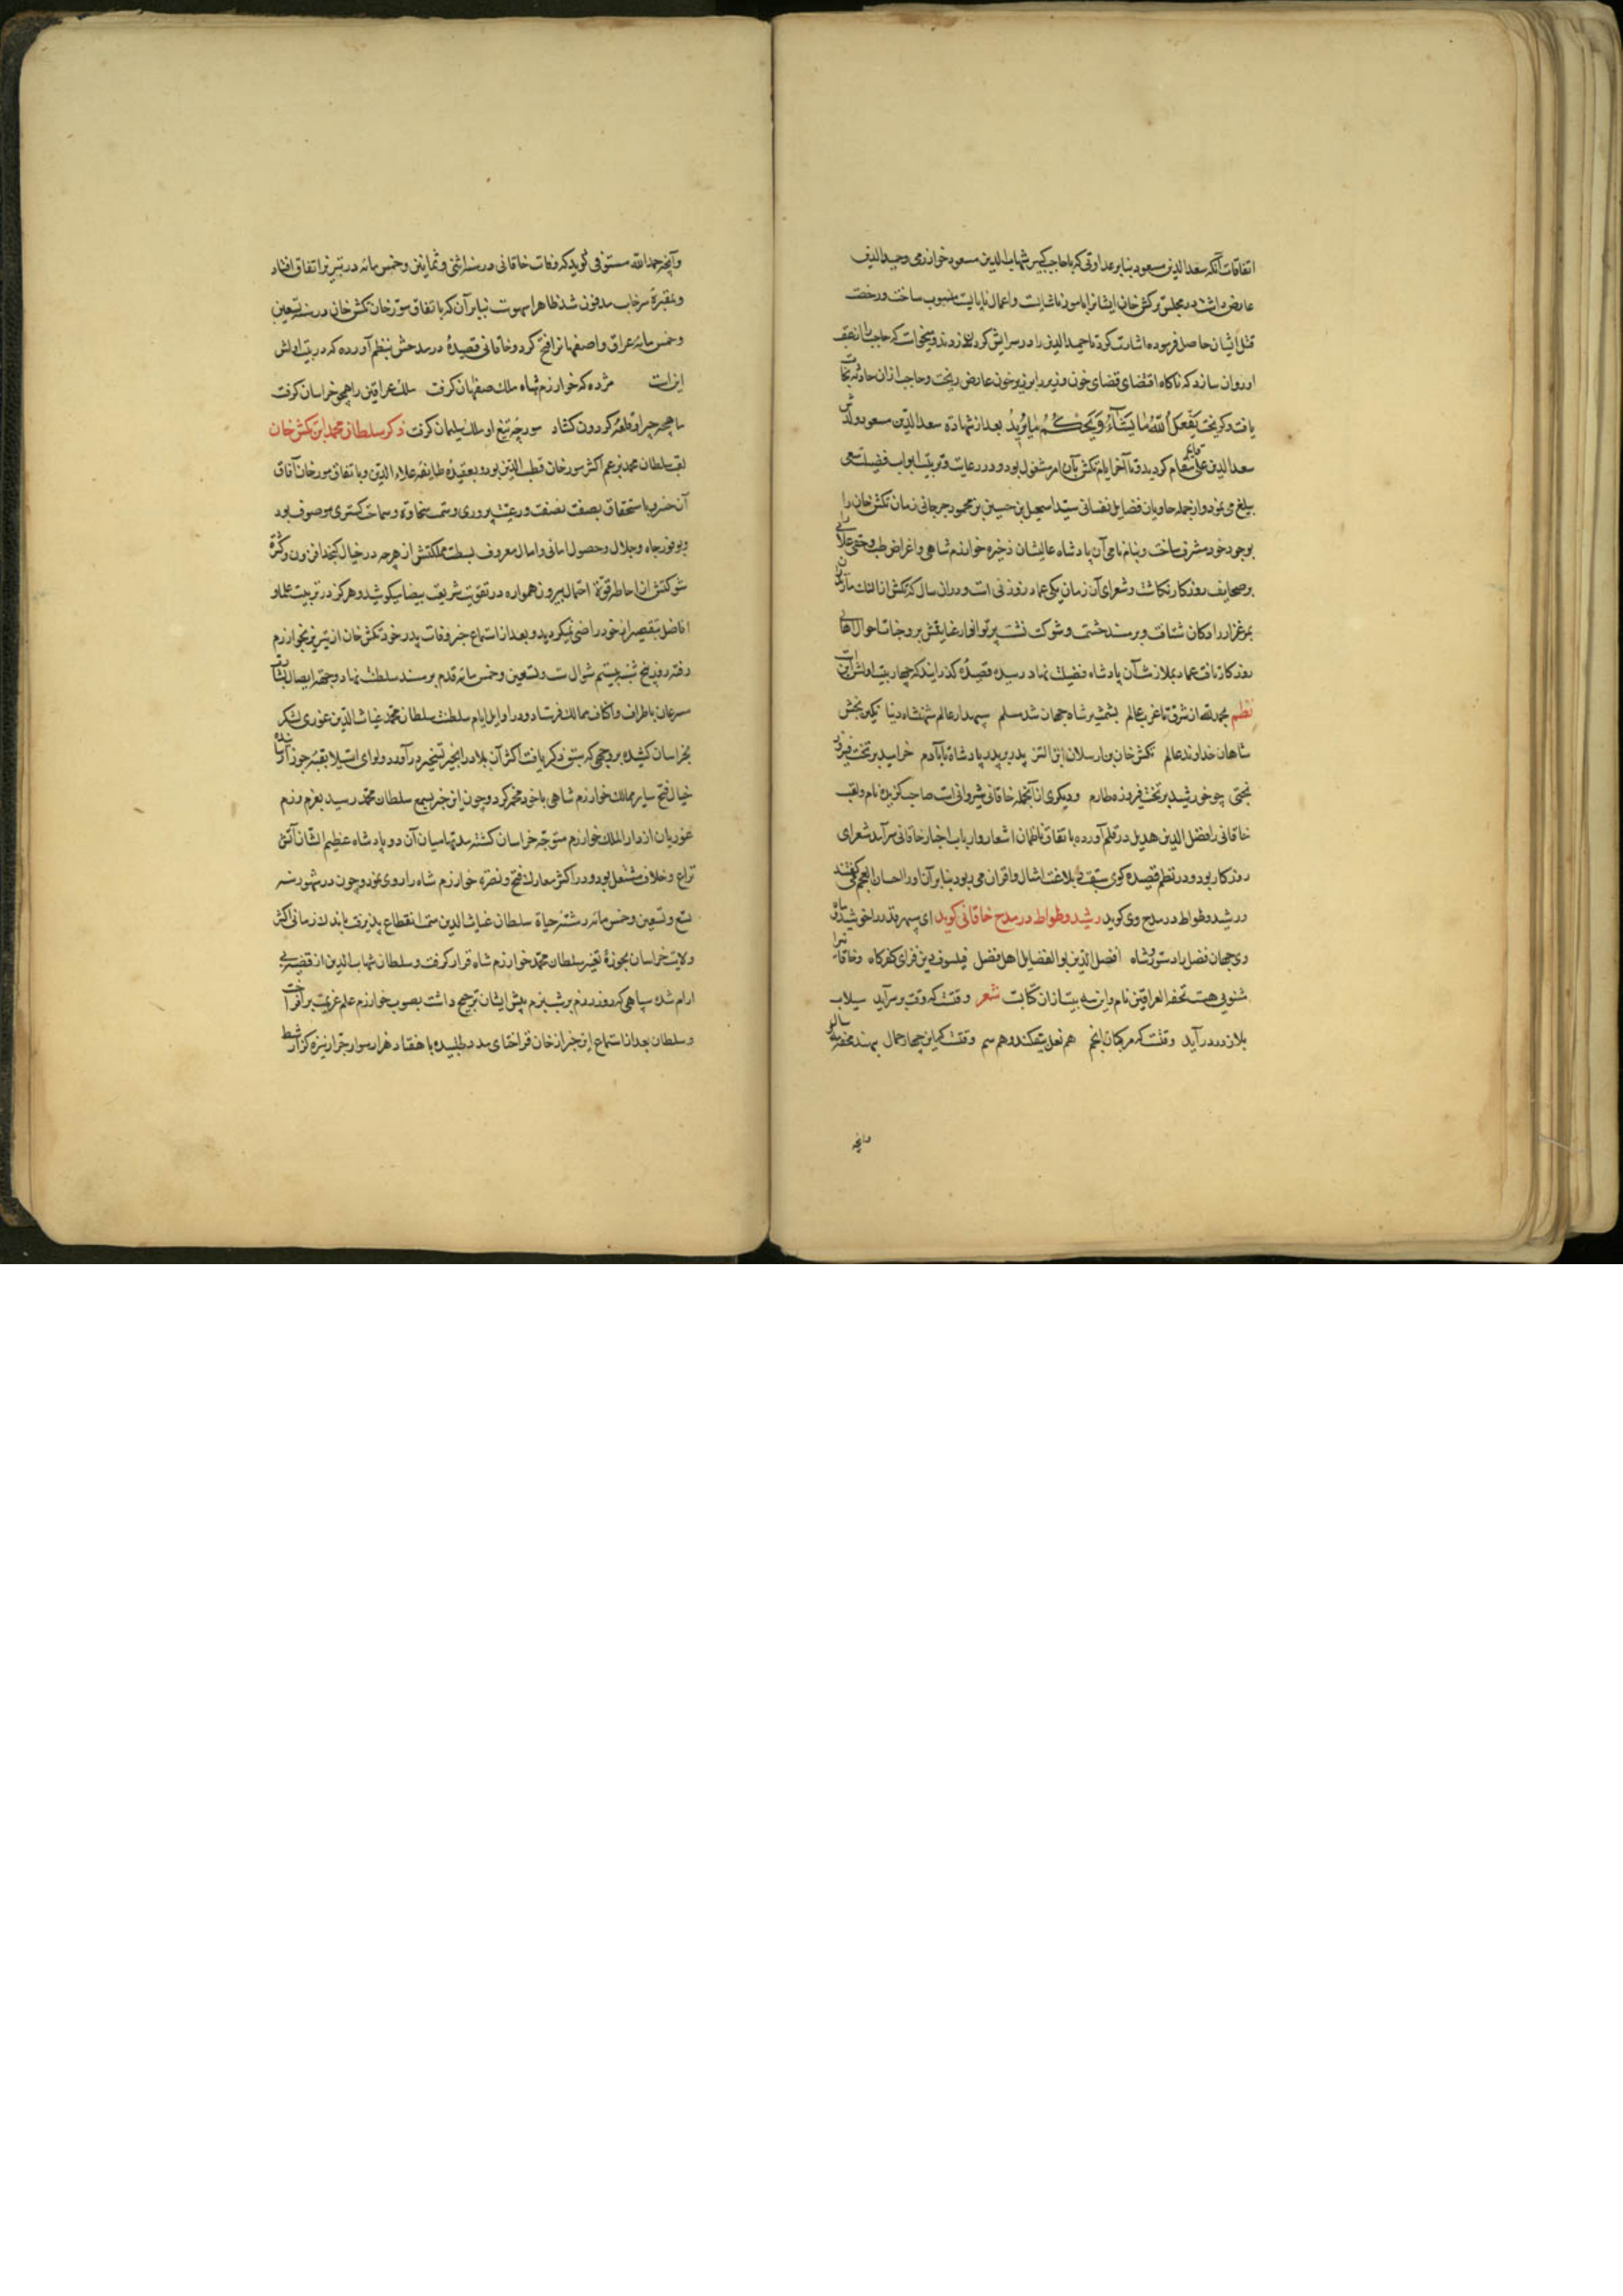 اتفاقات آنکه سعد الدین مسعود بنابر عداوتی که با حاجب کبیر شهاب الدین مسعود خوارزمی و حمید الدین
عارض داشت در مجلس تکش خان ایشانرا بامور ناشایست و اعمال نابایست منسوب ساخت و رخصت
قتل ایشان حاصل فرموده اشارت کرد تا حمید الدین را در سرایش کردن زدند و میخواست که حاجب را از عقب
او روان سازد که ناکاه اقتضای قضای خون وزیر را بر زبر خون عارض ریخت و حاجب ازان حادثه نجات
یافت و کریخت یَفْعَلُ اللّٰهُ مَا یَشَآءُ وَیَحْکُمُ مَا یُرِیدُ بعد از شهادة سعد الدین مسعود ولدش
سعد الدین علی قایم مقام کردید و تا آخر ایام تکش بآن امر مشغول بود و در رعایت و تربیت ارباب فضیلت سعی
بلیغ می نمود و از جمله حاویان فضایل نفسانی سید اسمعیل بن حسین بن محمود جرجانی زمان تکش خان را
بوجود خود مشرف ساخت و بنام نامی آن پادشاه عالیشان ذخیره خوارزمشاهی و اغراض طب و خفی علائی را
بر صحایف روزکار نکاشت و شعرای آن زمان یکی عماد زوزنی است و دران سال که تکش از
بمرغزار رادکان شتافت و بر مسند حشمت و شوکت نشست پرتو انوار عنایتش بر وجنات احوال اهالی
روزکار تافت عماد بملازمت آن پادشاه فضیلت نهاد رسیده قصیدهٔ کذرانید که چهار بیت اولش این است
نظم بحمد الله از شرق تا غرب عالم بشمشیر شاه جهان شد مسلم سپهدار عالم شهنشاه دنیا نکین بخش
شاهان خداوند عالم تکش خان بن ارسلان بن اتسز پدر بر پدر پادشاه تا بآدم خرامید بر تخت فیروز
بختی چو خورشید بر تخت فیروزه طارم و دیکری از آنجمله خاقانی شیروانی است صاحب کزیده نام و لقب
خاقانی را افضل الدین هدیل در قلم آورده باتفاق ناظمان اشعار و ارباب اخبار خاقانی سرآمد شعرای
روزکار بود و در نظم قصیده کوی سبقت بلاغت از امثال و اقران می ربود بنابر آن او را حسان العجم می گفتند
و رشید وطواط در مدح وی کوید رشید وطواط در مدح خاقانی کوید ای سپهر قدر را خورشید و ماه
وی جهان فضل را دستور و شاه افضل الدین بوالفضایل اهل فضل فیلسوف دین فزای کفر کاه و خاقانی را
مثنویی هست تحفه العراقین نام و این سه بیت ازان کتابت شعر وقتست که وقت بر سر آید سیلاب
بلا ز در درآید وقتست که مرکبان انجم هم نعل بیفکنند و هم سم وقتست که این چهار حمال بنهند محفه سالی
وانچه
وآنچه حمد الله مستوفی کوید که وفات خاقانی در سنه اثنی و ثمانین و خمس مائه در تبریز اتفاق افتاد
و بمقبرهٔ سرخاب مدفون شد ظاهرا سهوست بنابر آن که باتفاق مورخان تکش خان در سنه تسعین
و خمس مائه عراق و اصفهانرا فتح کرد و خاقانی قصیدهٔ در مدحش بنظم آورده که در بیت اولش
این است مژده که خوارزم شاه ملک صفاهان کرفت ملک عراقین را همچو خراسان کرفت
ماهچه چتر او قلعه کردون کشاد مورچه تیغ او ملک سلیمان کرفت ذکر سلطان محمد ابن تکش خان
لقب سلطان محمد بزعم اکثر مورخان قطب الدین بود و بعقیدهٔ طایفهٔ علاء الدین و باتفاق مورخان آفاق
آن خسرو باستحقاق بصفت نصفت و رعیت پروری و سمت سخاوة و سماحت کستری موصوف بود
و بوفور جاه و جلال و حصول امانی و امال معروف بسطت مملکتش از هرچه در خیال کنجد افزون و کثرة
شوکتش از احاطهٔ قوة احتمال بیرون همواره در تقویت شریعت بیضا میکوشید و هرکز در تربیت علما و
افاضل بتقصیر از خود راضی نمیکردید و بعد از استماع خبر وفات پدر خود تکش خان از تبریز بخوارزم
رفته روز پنج شنبه بیستم شوال ست و تسعین و خمس مائه قدم بر مسند سلطنت نهاد و جهة ایصال بشارت
مسرعان باطراف و اکناف ممالک فرستاد و در اوایل ایام سلطنت سلطان محمد غیاث الدین غوری لشکر
بخراسان کشیده بر وجهی که سبق ذکر یافت اکثر آن بلاد را بحیز تسخیر درآورد و لوای استیلا بقبهٔ جوزا رسانیده
خیال فتح سایر ممالک خوارزم شاهی با خود مخمر کرد و چون این خبر بسمع سلطان محمد رسید بعزم رزم
غوریان از دار الملک خوارزم متوجه خراسان کشته مدتها میان آن دو پادشاه عظیم الشان آتش
نزاع و خلاف مشتعل بود و در اکثر معارک فتح و نصرة خوارزم شاه را روی نمود و چون در شهور سنه
تسع و تسعین و خمس مائه رشته حیاة سلطان غیاث الدین سمت انقطاع پذیرفت باندک زمانی اکثر
ولایت خراسان بحوزهٔ تغیر سلطان محمد خوارزم شاه قرار کرفت و سلطان شهاب الدین از قضیه بی
ارام شده سپاهی که روز رزم بر شب بزم پیش ایشان ترجیح داشت بصوب خوارزم علم عزیمت برافراخت
و سلطان بعد از استماع این خبر از خان قراختای مدد طلبیده با هفتاد هزار سوار جرار نیزه کزار بشط